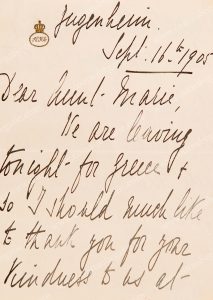 Jugenheim.
Sept. 16th 1905
Dear Aunt Marie,
We are leaving
tonight for Greece &
so I should much like
to thank you for your
kindness to us at